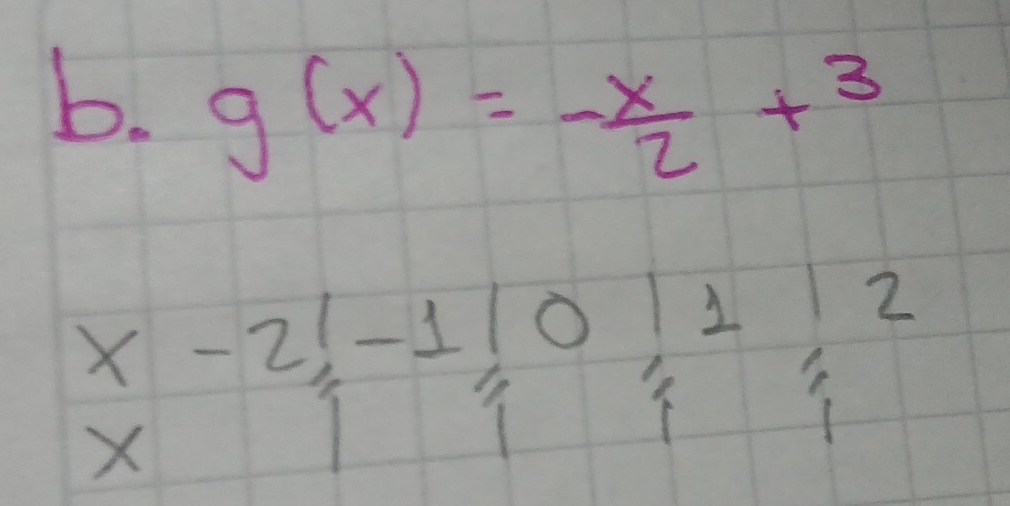 b. g(x) = -x/2 + 3
x -2 | -1 | 0 | 1 | 2
x | | | |